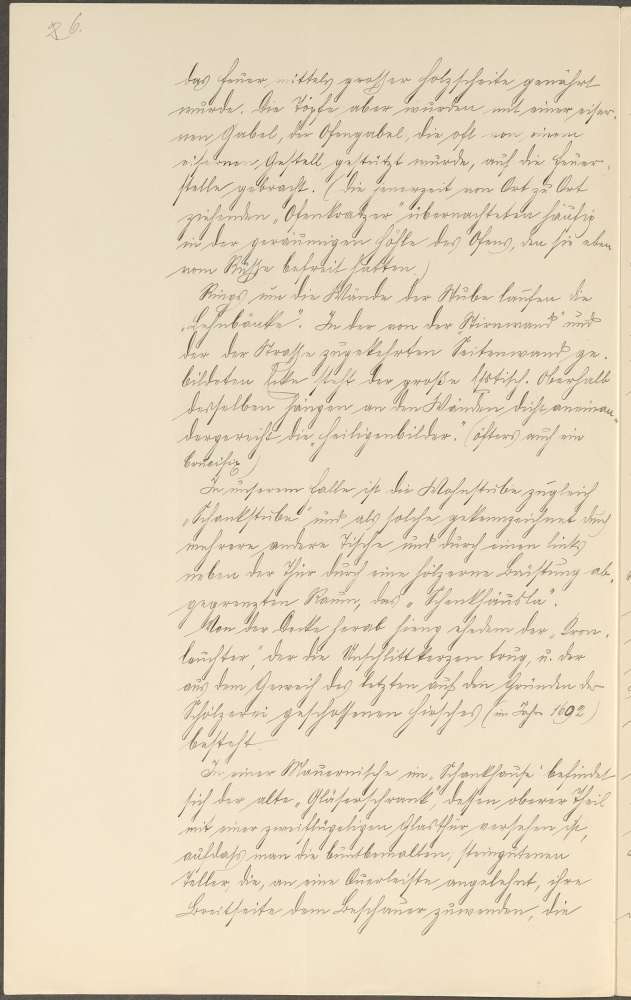 6.
das Feuer mittels grosser Holzscheite genährt
wurde. Die Töpfe aber wurden mit einer eiser-
nen Gabel, der Ofengabel, die oft von einem
eisernen Gestell gestützt wurde, auf die Feuer-
stelle gebracht. (Die seinerzeit von Ort zu Ort
ziehenden „Ofenkratzer" übernachteten häufig
in der geräumigen Höhle des Ofens, den sie eben
vom Russe befreit hatten.)
Rings um die Wände der Stube laufen die
„Lehnbänke". In der von der „Stirnwand" und
der der Strasse zugekehrten Seitenwand ge-
bildeten Ecke steht der große Esstisch. Oberhalb
desselben hängen an den Wänden dicht aneinan-
dergereiht die „Heiligenbilder." (öfters auch ein
Crucifix)
In unserem Falle ist die Wohnstube zugleich
„Schankstube" und als solche gekennzeichnet durch
mehrere andere Tische und durch einen links
neben der Thür durch eine hölzerne Brüstung ab-
gegrenzten Raum, das „Schenkhäusla".
Von der Decke herab hieng ehedem der „Kron-
leuchter", der die Unschlittkerzen trug, u. der
aus dem Geweih des letzten auf den Gründen der
Schölzerei geschossenen Hirsches (im Jahre 1692)
besteht.
In einer Mauernische im „Schankhause" befindet
sich der alte „Gläserschrank", dessen oberer Theil
mit einer zweiflügeligen Glasthür versehen ist,
aufdass man die buntbemalten, steingutenen
Teller, die, an eine Querleiste angelehnt, ihre
Breitseite dem Beschauer zuwenden, die